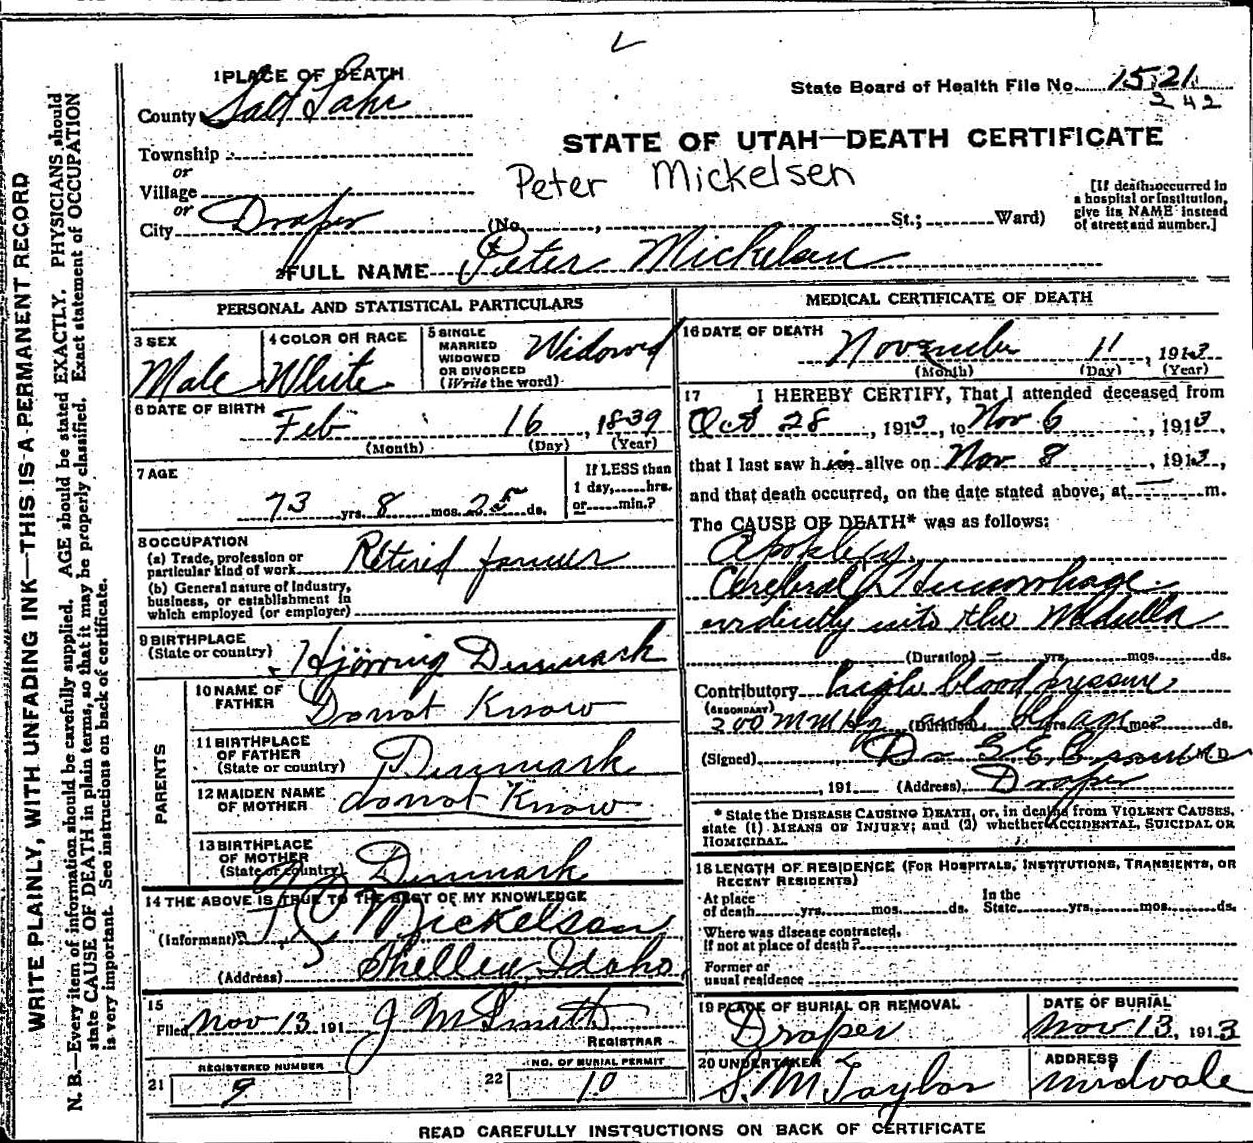 WRITE PLAINLY, WITH UNFADING INK—THIS IS A PERMANENT RECORD
N. B.—Every item of information should be carefully supplied. AGE should be stated EXACTLY. PHYSICIANS should
state CAUSE OF DEATH in plain terms, so that it may be properly classified. Exact statement of OCCUPATION
is very important. See instructions on back of certificate.
1 PLACE OF DEATH
State Board of Health File No. 1521
242
County Salt Lake
STATE OF UTAH—DEATH CERTIFICATE
Township
or
Village
Peter Mickelsen
or
City Draper (No. , St.; Ward)
[If death occurred in
a hospital or institution,
give its NAME instead
of street and number.]
2 FULL NAME Peter Mickelsen
PERSONAL AND STATISTICAL PARTICULARS
3 SEX
Male
4 COLOR OR RACE
White
5 SINGLE
MARRIED
WIDOWED
OR DIVORCED
(Write the word)
Widowed
6 DATE OF BIRTH
Feb 16, 1839
(Month) (Day) (Year)
7 AGE
73 yrs. 8 mos. 25 ds.
If LESS than
1 day, hrs.
or min.?
8 OCCUPATION
(a) Trade, profession or
particular kind of work Retired farmer
(b) General nature of industry,
business, or establishment in
which employed (or employer)
9 BIRTHPLACE
(State or country) Hjorring Denmark
PARENTS
10 NAME OF
FATHER Do not Know
11 BIRTHPLACE
OF FATHER
(State or country) Denmark
12 MAIDEN NAME
OF MOTHER do not Know
13 BIRTHPLACE
OF MOTHER
(State or country) Denmark
14 THE ABOVE IS TRUE TO THE BEST OF MY KNOWLEDGE
(Informant) Mickelson
(Address) Shelley Idaho
15
Filed Nov 13 191 J M Smith
REGISTRAR
REGISTERED NUMBER
21 9
NO. OF BURIAL PERMIT
22 10
MEDICAL CERTIFICATE OF DEATH
16 DATE OF DEATH
November 11, 1913
(Month) (Day) (Year)
17 I HEREBY CERTIFY, That I attended deceased from
Oct 28, 1913, to Nov 6, 1913,
that I last saw him alive on Nov 8, 1913,
and that death occurred, on the date stated above, at m.
The CAUSE OF DEATH* was as follows:
Apoplexy
Cerebral Hemorrhage
evidently into the Medulla
(Duration) yrs. mos. ds.
Contributory high blood pressure
(SECONDARY) 200 MM Hg and (Duration) yrs. mos. ds.
(Signed) Dr M.D.
, 191 (Address) Draper
* State the DISEASE CAUSING DEATH, or, in deaths from VIOLENT CAUSES,
state (1) MEANS OF INJURY; and (2) whether ACCIDENTAL, SUICIDAL OR
HOMICIDAL.
18 LENGTH OF RESIDENCE (FOR HOSPITALS, INSTITUTIONS, TRANSIENTS, OR
RECENT RESIDENTS)
At place
of death yrs. mos. ds. In the
State yrs. mos. ds.
Where was disease contracted,
If not at place of death?
Former or
usual residence
19 PLACE OF BURIAL OR REMOVAL
Draper
DATE OF BURIAL
Nov 13, 1913
20 UNDERTAKER
S. M Taylor
ADDRESS
Midvale
READ CAREFULLY INSTRUCTIONS ON BACK OF CERTIFICATE